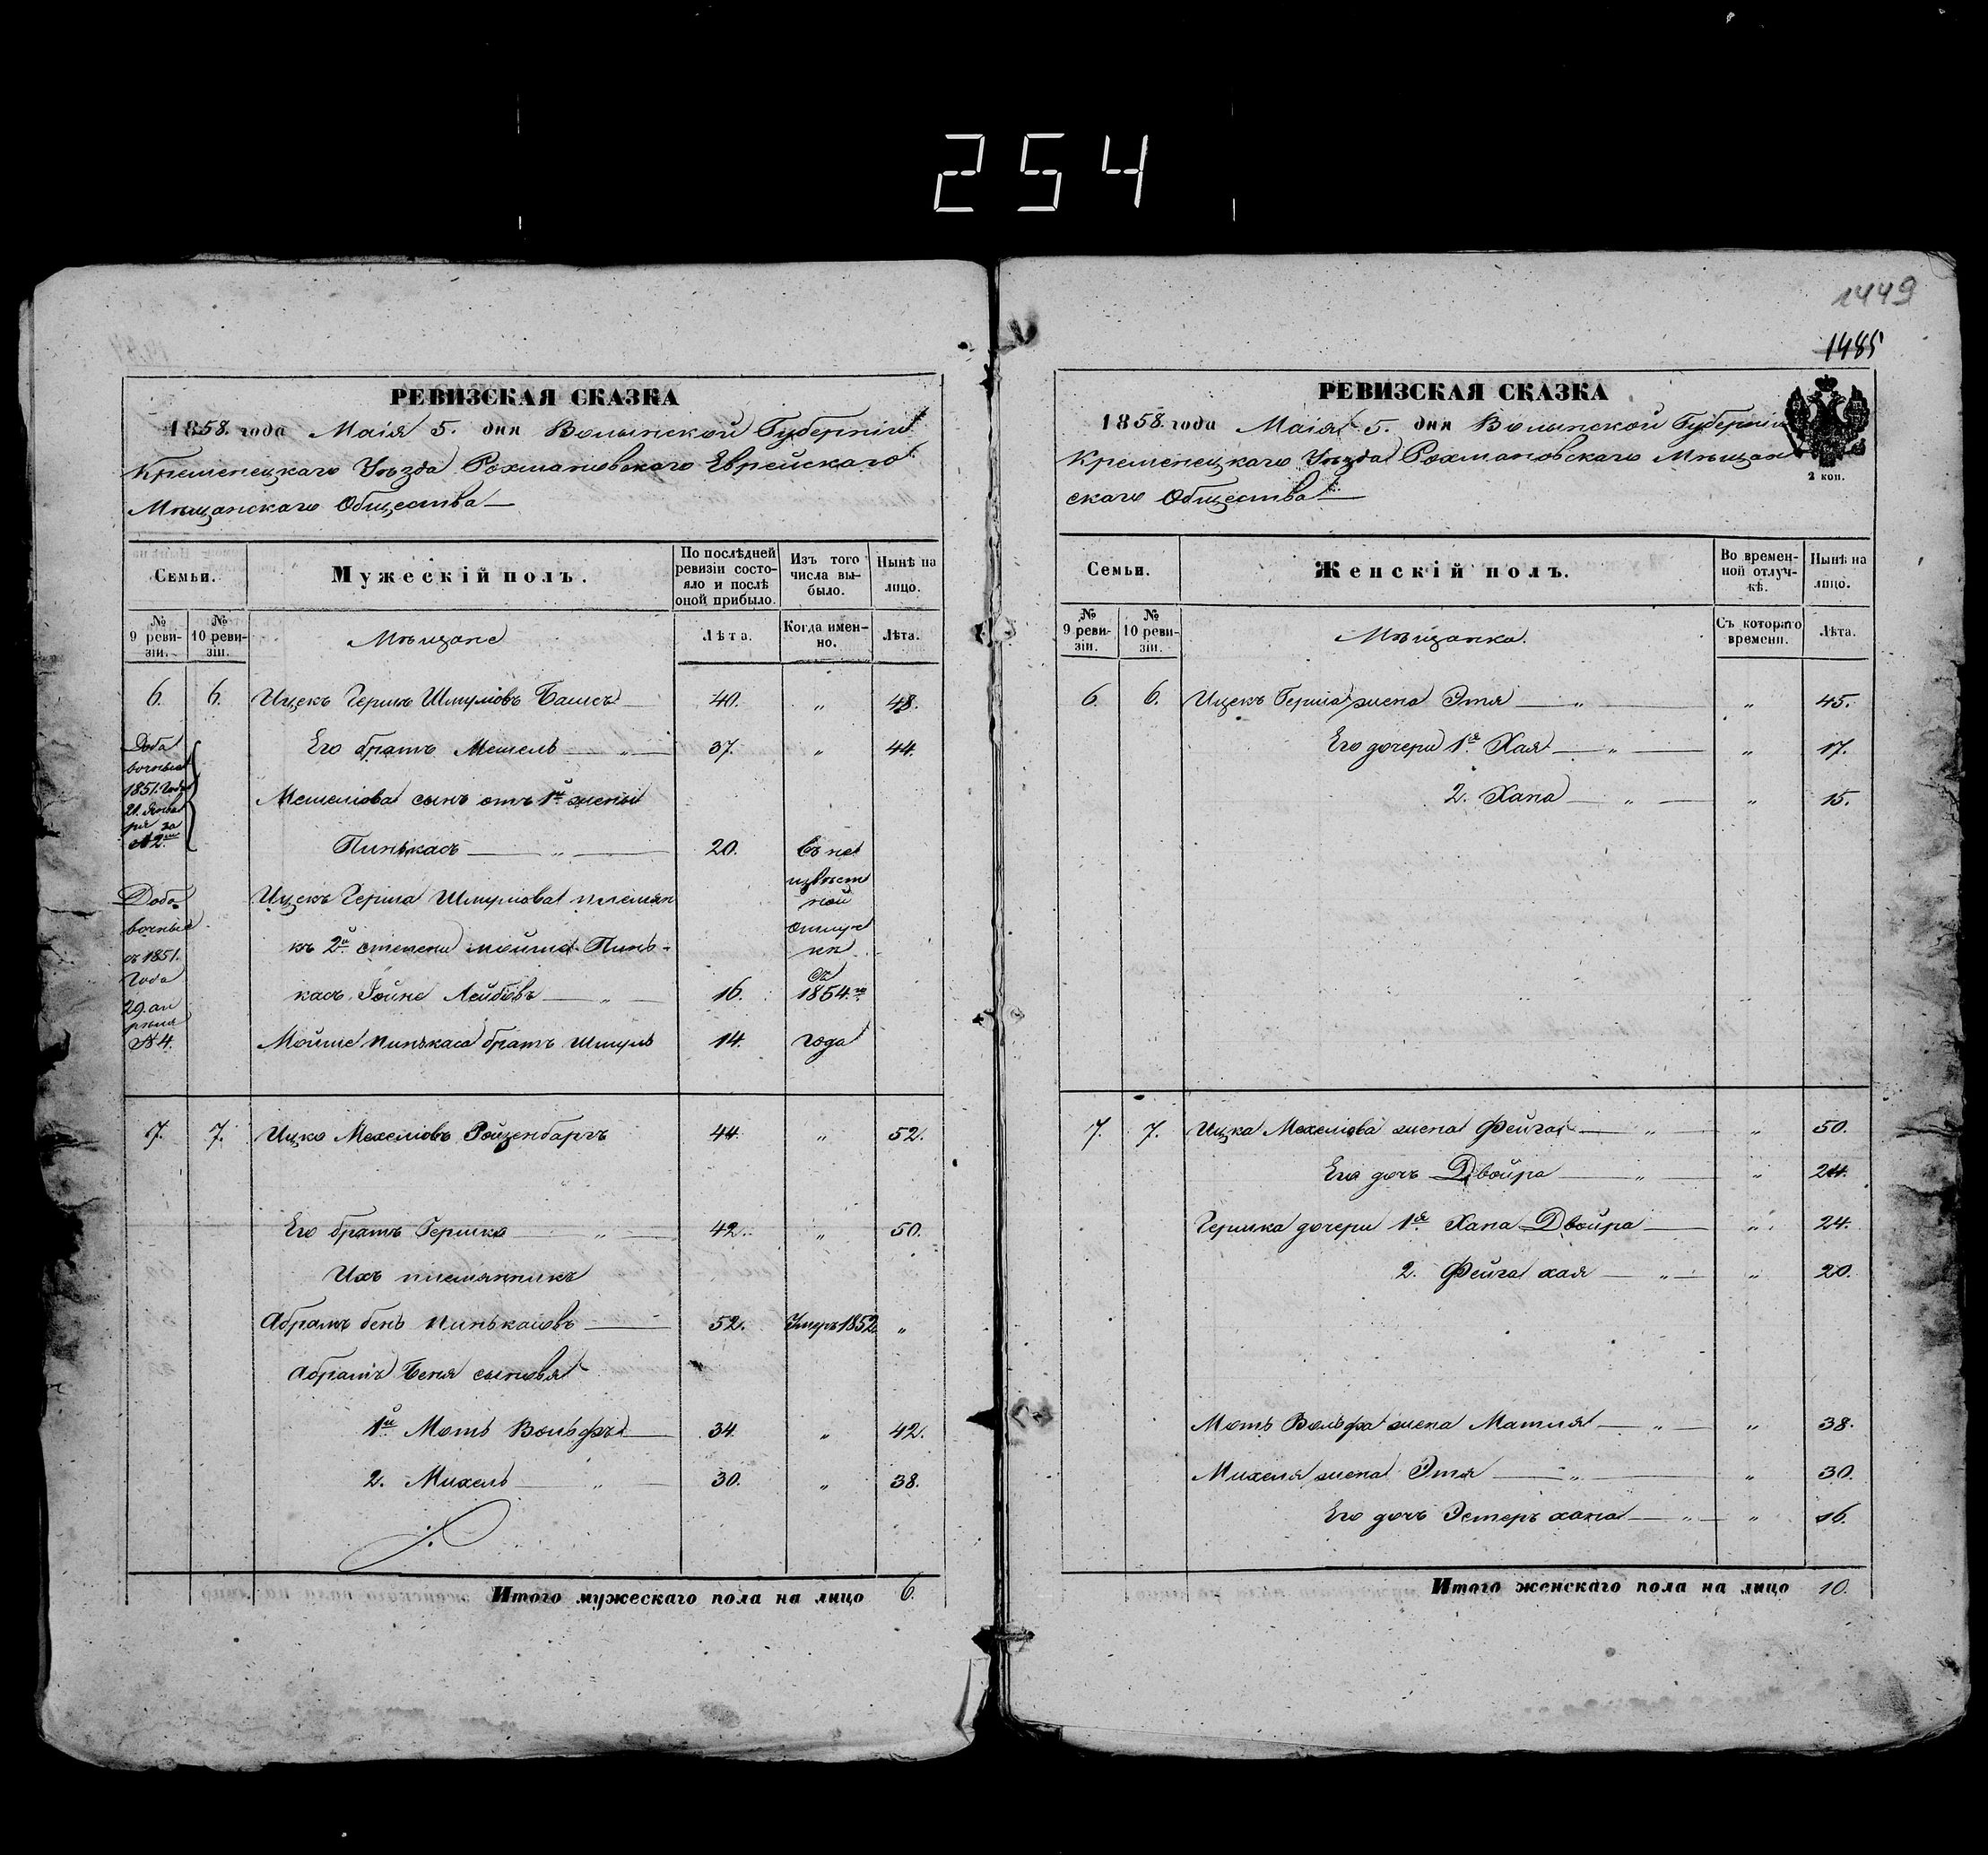 254
1449
1485
РЕВИЗСКАЯ СКАЗКА
1858. года Маія 5. дня Волынской Губерніи
Кременецкаго Уѣзда Рохмановскаго Еврейскаго
Мѣщанскаго Общества
Семьи.
Мужескій полъ.
По послѣдней ревизіи состояло и послѣ оной прибыло.
Изъ того числа выбыло.
Нынѣ на лицо.
№ 9 ревизіи.
№ 10 ревизіи.
Мѣщане
Лѣта.
Когда именно.
Лѣта.
6. 6. Ицекъ Гершъ Шмулiовъ 40. „ 48.
Его братъ Мешель „ 37. „ 44.
Добавочные 1851. Года 21. Января за №2.
Мешелiова сынъ отъ 1й жены
Пинькасъ „ 20. Въ не
извѣст
ной
отлуч
кѣ
съ
1854.го
года
Добавочные съ 1851. Года 29. апрѣля №4.
Ицекъ Герша Шмулiова племян
къ 2й степени Мойше Пинь-
касъ Лейбовъ „ 16.
Мойше Пинькаса братъ Шмуль 14.
7. 7. Ицко Мехелiовъ Ройзенбаргъ 44. „ 52.
Его братъ Гершко „ 42. „ 50.
Ихъ племянникъ
Абрамъ бень Пинькасовъ 52. Умеръ 1852 „
Абрамъ Беня сыновья
1й Моть Вольфъ 34. „ 42.
2. Михель „ 30. „ 38.
Итого мужескаго пола на лицо 6.
РЕВИЗСКАЯ СКАЗКА
1858. года Маія 5. дня Волынской Губерніи
Кременецкаго Уѣзда Рохмановскаго Мѣщан
скаго Общества
2 коп.
Семьи.
Женскій полъ.
Во временной отлучкѣ.
Нынѣ на лицо.
№ 9 ревизіи.
№ 10 ревизіи.
Мѣщанка.
Съ котораго времени.
Лѣта.
6. 6. Ицекъ Герша жена Этя „ „ 45.
Его дочери 1я Хая „ „ 17.
2. Хана „ „ 15.
7. 7. Ицка Мехелiова жена Фейга „ „ 50.
Его дочь Двойра „ „ 24.
Гершка дочери 1я Хана Двойра „ 24.
2. Фейга хая „ „ 20.
Моть Вольфа жена Матля „ „ 38.
Михеля жена Этя „ „ 30.
Его дочь Эстеръ хана „ „ 16.
Итого женскаго пола на лицо 10.